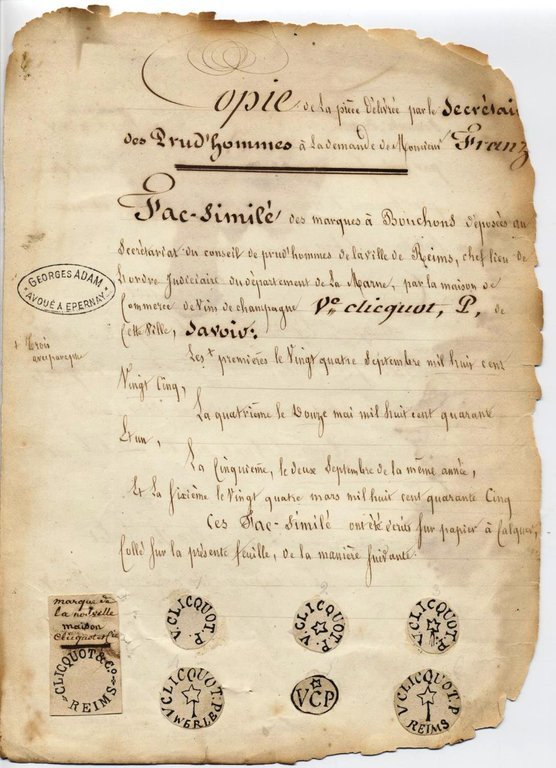 Copie de la pièce délivrée par le Secrétai
des Prud'hommes à la demande de Monsieur Franz
Fac-Similé des marques à Bouchons déposées au
Secrétariat du conseil de prud'hommes de la ville de Reims, chef lieu de
l'ordre Judiciaire du département de La Marne, par la maison de
Commerce de Vins de champagne Ve. Clicquot, P, de
Cette Ville, Savoir:
GEORGES ADAM
AVOUÉ A EPERNAY
+ trois
Les + premières le Vingt quatre Septembre mil huit cent
Vingt Cinq,
La quatrième le Douze mai mil huit cent quarante
Et un,
La Cinquième, le deux Septembre de la même année,
Et la Sixième le Vingt quatre mars mil huit cent quarante Cinq
Ces Fac-Similé ont été sur papier à Calquer,
Collé sur la présente feuille, de la manière Suivante
marque de
la nouvelle
maison
clicquot & Cie
CLICQUOT & Co.
REIMS
1
V. CLICQUOT. P
2
V. CLICQUOT. P
3
V. CLICQUOT. P
V CLICQUOT. P
WERLE
VCP
V CLICQUOT. P
REIMS